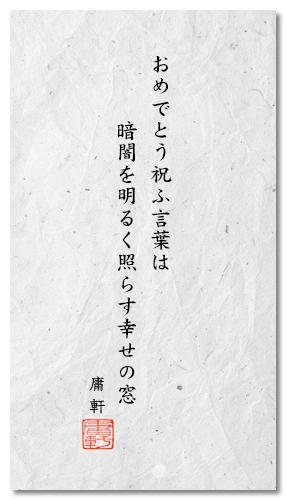 おめでとう祝ふ言葉は
暗闇を明るく照らす幸せの窓
庸軒
庸軒